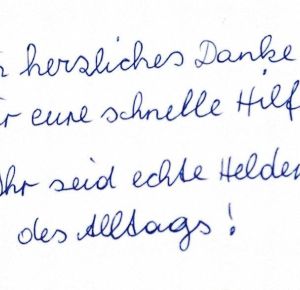 n herzliches Danke
ür eure schnelle Hilf
Ihr seid echte Helden
des Alltags!